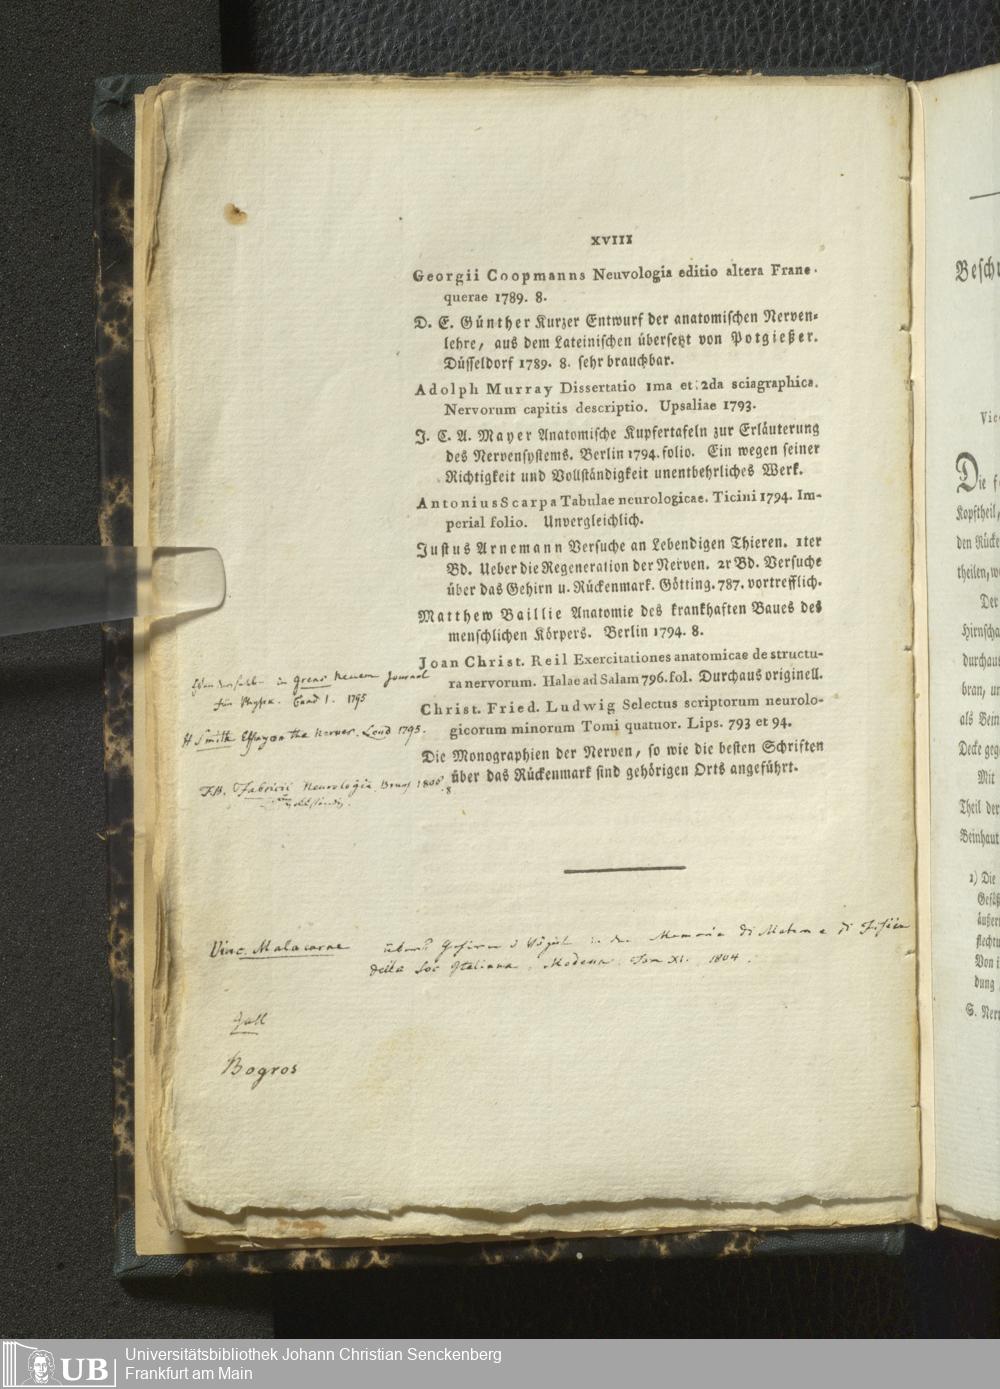 XVIII
Georgii Coopmanns Neuvologia editio altera Frane-
querae 1789. 8.
D. E. Günther Kurzer Entwurf der anatomischen Nerven-
lehre, aus dem Lateinischen übersetzt von Potgießer.
Düsseldorf 1789. 8. sehr brauchbar.
Adolph Murray Dissertatio 1ma et 2da sciagraphica.
Nervorum capitis descriptio. Upsaliae 1793.
J. C. A. Mayer Anatomische Kupfertafeln zur Erläuterung
des Nervensystems. Berlin 1794. folio. Ein wegen seiner
Richtigkeit und Vollständigkeit unentbehrliches Werk.
Antonius Scarpa Tabulae neurologicae. Ticini 1794. Im-
perial folio. Unvergleichlich.
Justus Arnemann Versuche an Lebendigen Thieren. 1ter
Bd. Ueber die Regeneration der Nerven. 2r Bd. Versuche
über das Gehirn u. Rückenmark. Götting. 787. vortrefflich.
Matthew Baillie Anatomie des krankhaften Baues des
menschlichen Körpers. Berlin 1794. 8.
Joan Christ. Reil Exercitationes anatomicae de structu-
ra nervorum. Halae ad Salam 796. fol. Durchaus originell.
in Grens Neuem Journal
für Physik. Band 1. 1795
Christ. Fried. Ludwig Selectus scriptorum neurolo-
gicorum minorum Tomi quatuor. Lips. 793 et 94.
H Smith Essay on the nerves. Lond 1795.
Die Monographien der Nerven, so wie die besten Schriften
über das Rückenmark sind gehörigen Orts angeführt.
F.B. Fabricii Neurologia 1806. 8
Vinc. Malacarne Memorie di Matem e di Fisica
della Soc Italiana. Modena. Tom XI. 1804.
Gall
Bogros
Besch
Die f
Kopftheil,
den Rücke
theilen, w
Der
Hirnscha
durchaus
bran, un
als Bein
Decke geg
Mit
Theil der
Beinhaut
1) Die
Gefäß
äußer
flechtu
Von i
dung
S. Ner
UB
Universitätsbibliothek Johann Christian Senckenberg
Frankfurt am Main